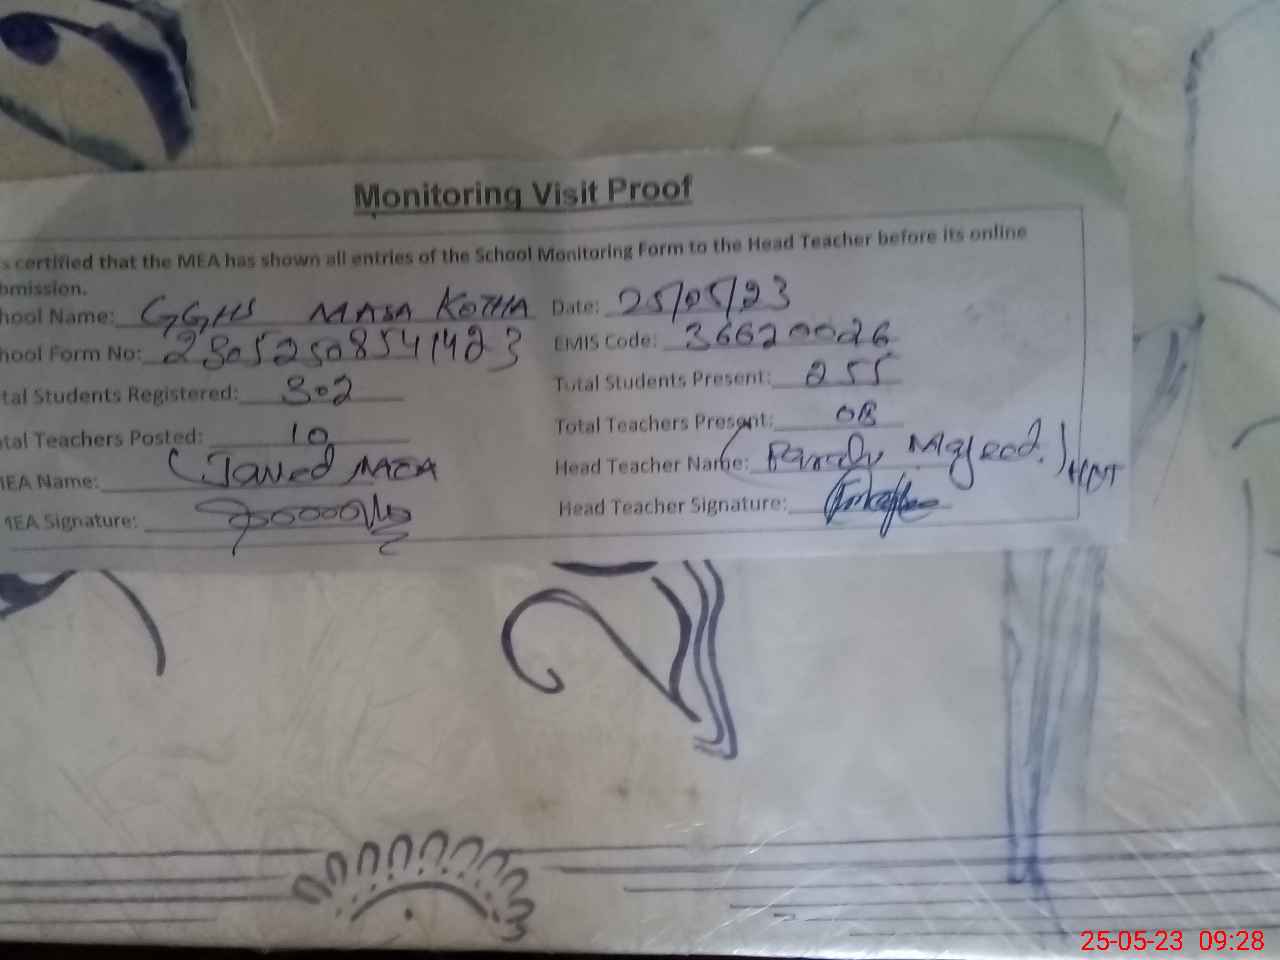 Monitoring Visit Proof
s certified that the MEA has shown all entries of the School Monitoring Form to the Head Teacher before its online
bmission.
hool Name: GGHS MASA KOTHA Date: 25/05/23
hool Form No: 2305250854 1423 EMIS Code: 36620026
tal Students Registered: 302 Total Students Present: 255
tal Teachers Posted: 10 Total Teachers Present: 08
MEA Name: (Javed MEA Head Teacher Name: ( Majeed.)
MEA Signature: Head Teacher Signature:
25-05-23 09:28